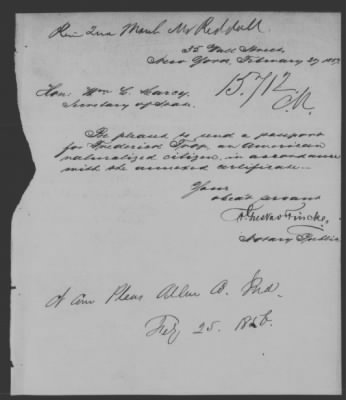 35 Wall Street,
New York, February 27, 1857
15.712
M.
Hon: Wm L. Marcy,
Secretary of State.
Be pleased to send a passport
for Frederick Trop, an American
naturalized citizen, in accordance
with the annexed certificate.
Your
obe't servant
Gustav Fincke,
Notary Public
Ct Com Pleas Allen Co. Ind.
Feby 25. 1856.